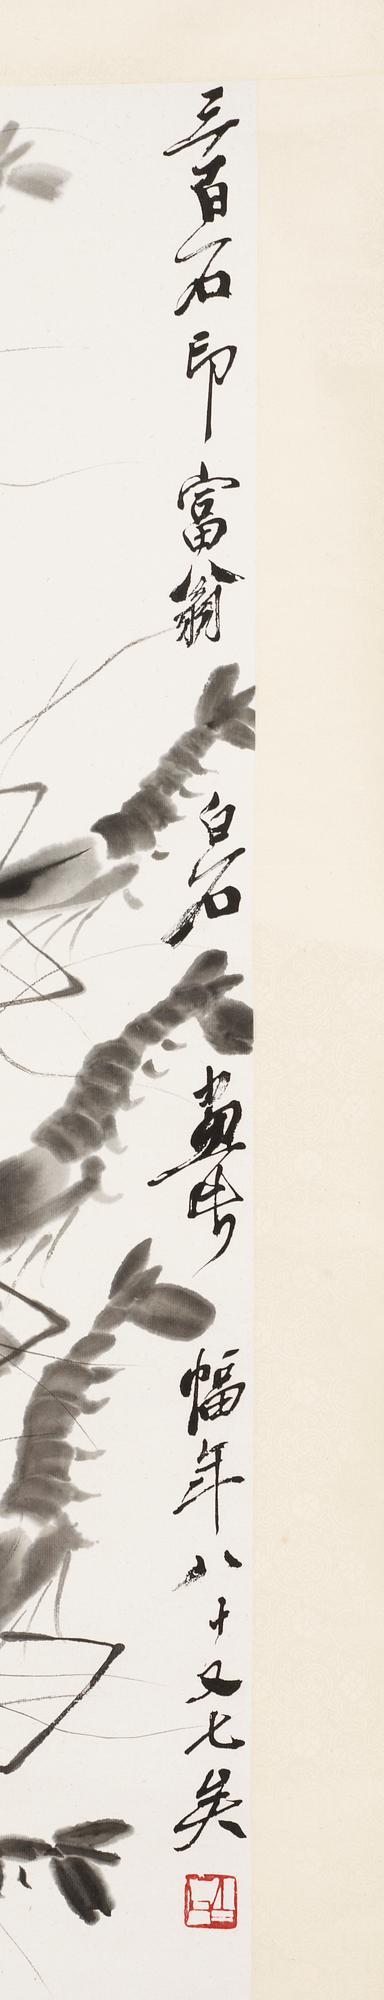 三百石印富翁白石畫幅年八十又七矣